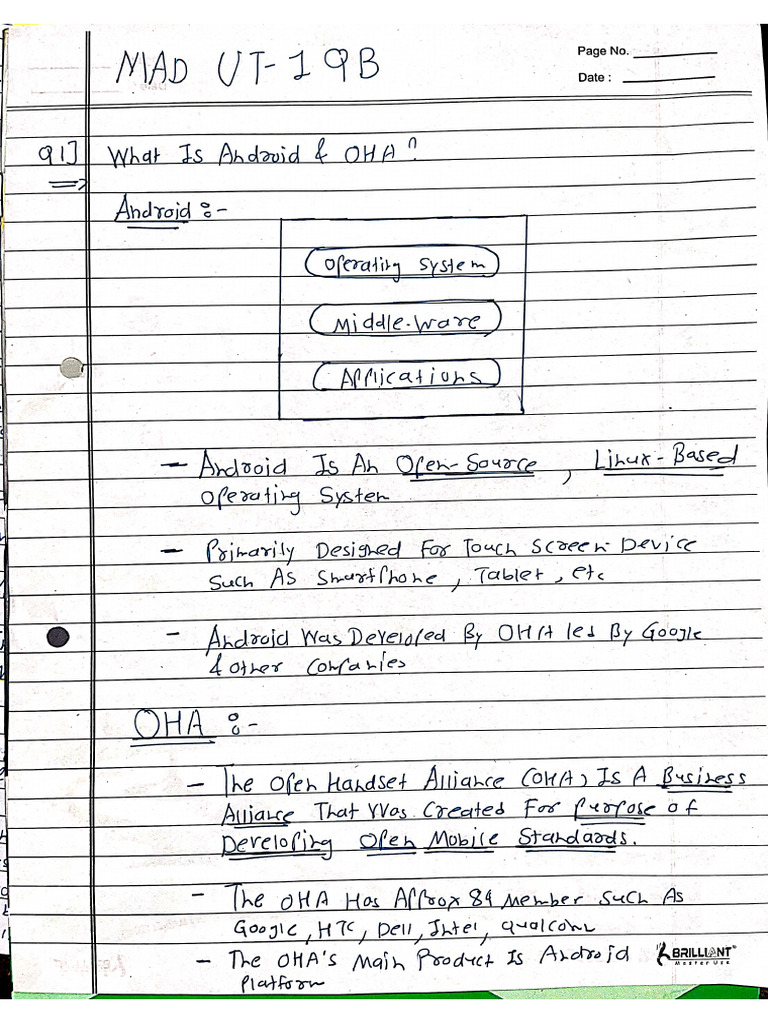 Page No.
Date :
MAD UT-1 QB
Q1] What Is Android & OHA?
Android :-
Operating System
Middle-Ware
Applications
- Android Is An Open-Source, Linux-Based
Operating System
- Primarily Designed For Touch Screen Device
Such As Smartphone, Tablet, etc
- Android Was Developed By OHA led By Google
& other Companies
OHA :-
- The Open Handset Alliance (OHA) Is A Business
Alliance That Was Created For Purpose of
Developing Open Mobile Standards.
- The OHA Has Approx 84 Member Such As
Google, HTC, Dell, Intel, Qualcomm
- The OHA's Main Product Is Android
Platform
BRILLIANT
Master Use